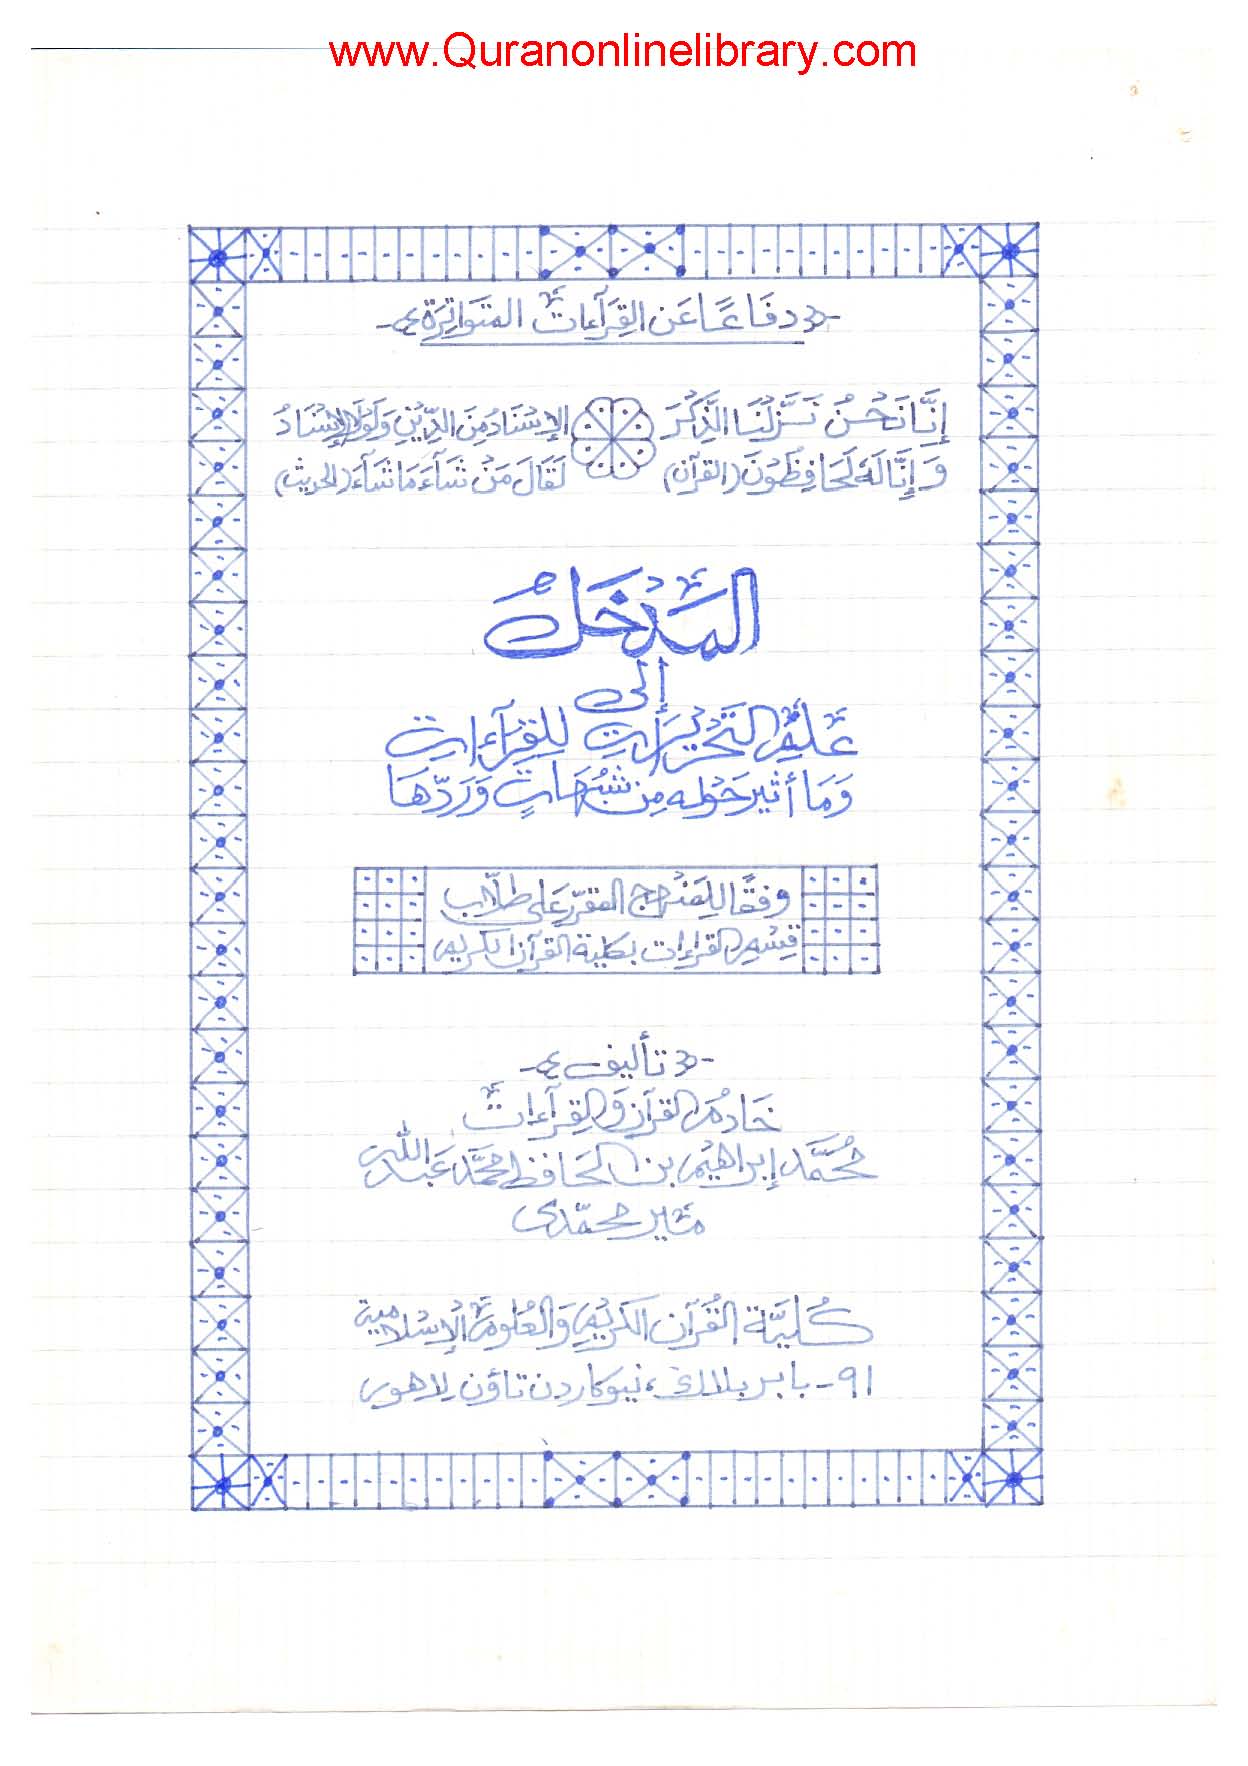 www.Quranonlinelibrary.com
دفَاعًا عَن القِرَآءات المتوَاتِرَة
إِنَّا نَحْنُ نَزَّلْنَا الذِّكْرَ
وَإِنَّا لَهُ لَحَافِظُوْنَ (القرآن)
الإسْنَادُ مِنَ الدِّيْنِ وَلَوْلَا الإِسْنَادُ
لَقَالَ مَنْ شَآءَ مَا شَآءَ (الحديث)
المَدْخَلُ
إلى
عِلمِ التَّحْرِيْرَاتِ لِلقِرَآءَاتِ
وَمَا أثير حَوْله مِن شُبُهَاتٍ وَرَدّهَا
وفقًا للمَنْهج المقرّر عَلى طلّاب
قِسْمِ القراءات بكلية القرآن الكريم
تأليف
خَادم القرآن وَالقِرآءات
مُحَمَّد إبراهيْم بن الحَافظ محمَّد عَبد الله
مير محمّدى
كُليَّة القُرآن الكَريْم وَالعُلوم الإسْلامية
٩١ - بابر بلاك، نيو كاردن تاؤن لاهور